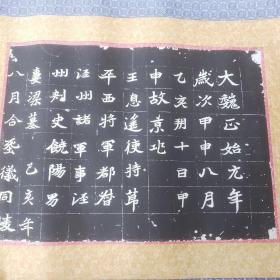 大魏正始元年
歲次甲申八月
乙亥朔十日甲
申故京兆
王息遥使持節
平西將軍都督
涇州諸軍事涇
州刾史饒陽男
妻梁墓 己亥年
八月合葬儀同